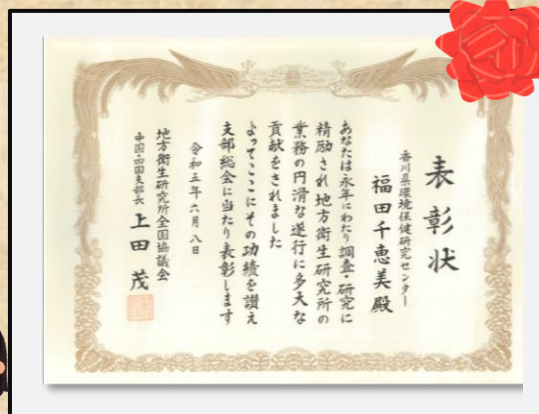 表彰状
香川県環境保健研究センター
福田千恵美殿
あなたは永年にわたり調査・研究に
精励され地方衛生研究所の
業務の円滑な遂行に多大な
貢献をされました
よってここにその功績を讃え
支部総会に当たり表彰します
令和五年六月八日
地方衛生研究所全国協議会
中国・四国支部長 上田茂